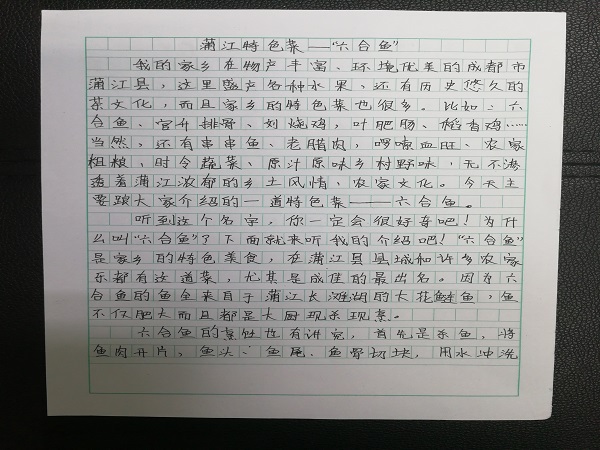 蒲江特色菜——“六合鱼”
我的家乡在物产丰富、环境优美的成都市
蒲江县，这里盛产各种水果、还有历史悠久的
茶文化，而且家乡的特色菜也很多。比如：六
合鱼、官升排骨、刘烧鸡，叶肥肠、稻香鸡……
当然，还有串串鱼、老腊肉，啰嗦血旺、农家
粗粮、时令蔬菜、原汁原味乡村野味，无不渗
透着蒲江浓郁的乡土风情、农家文化。今天主
要跟大家介绍的一道特色菜——六合鱼。
听到这个名字，你一定会很好奇吧！为什
么叫“六合鱼”了下面就来听我的介绍吧！“六合鱼”
是家乡的特色美食，在蒲江县县城和许多农家
乐都有这道菜，尤其是成佳的最出名。因为六
合鱼的鱼全来自于蒲江长滩湖的大花鲢鱼，鱼
不仅肥大而且都是大厨现杀现烹。
六合鱼的烹饪也有讲究，首先是杀鱼，将
鱼肉开片，鱼头、鱼尾、鱼骨切块，用水冲洗